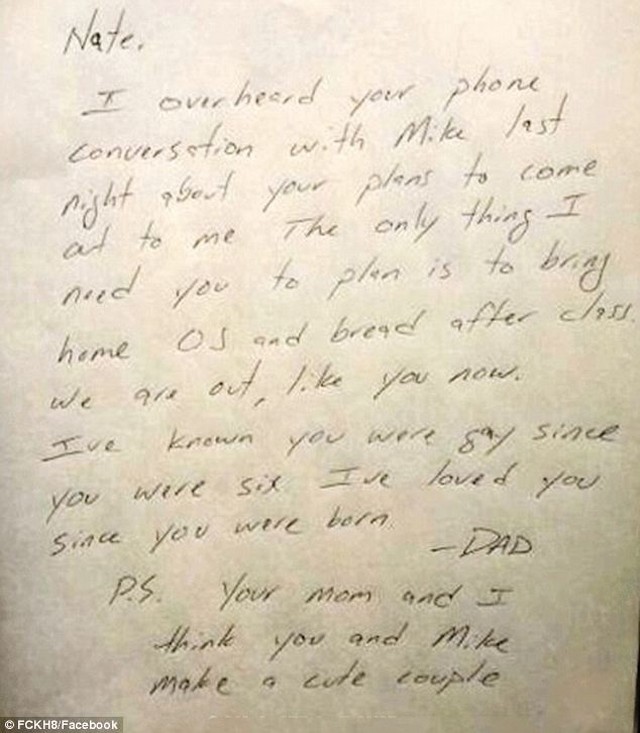 Nate,
I overheard your phone
conversation with Mike last
night about your plans to come
out to me The only thing I
need you to plan is to bring
home OJ and bread after class.
we are out, like you now.
Ive known you were gay since
you were six Ive loved you
since you were born
-DAD
P.S. Your mom and I
think you and Mike
make a cute couple
© FCKH8/Facebook